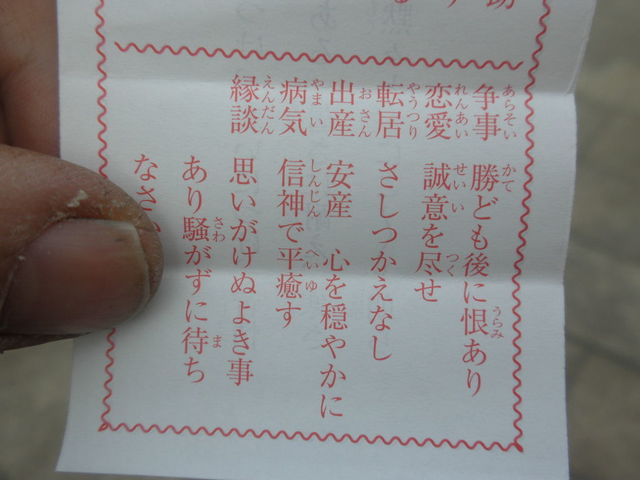 争事 勝ども後に恨あり
恋愛 誠意を尽せ
転居 さしつかえなし
出産 安産 心を穏やかに
病気 信神で平癒す
縁談 思いがけぬよき事
あり騒がずに待ち
なさ